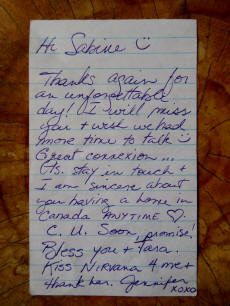 Hi Sabine ☺
Thanks again for
an unforgettable
day! I will miss
you + wish we had
more time to talk ☺
Great connexion...
Pls. stay in touch +
I am sincere about
you having a home in
Canada ANYTIME ♡.
C. U. Soon, promise!
Bless you + Tara.
Kiss Nirvana 4 me +
thank her. Jennifer
xoxo